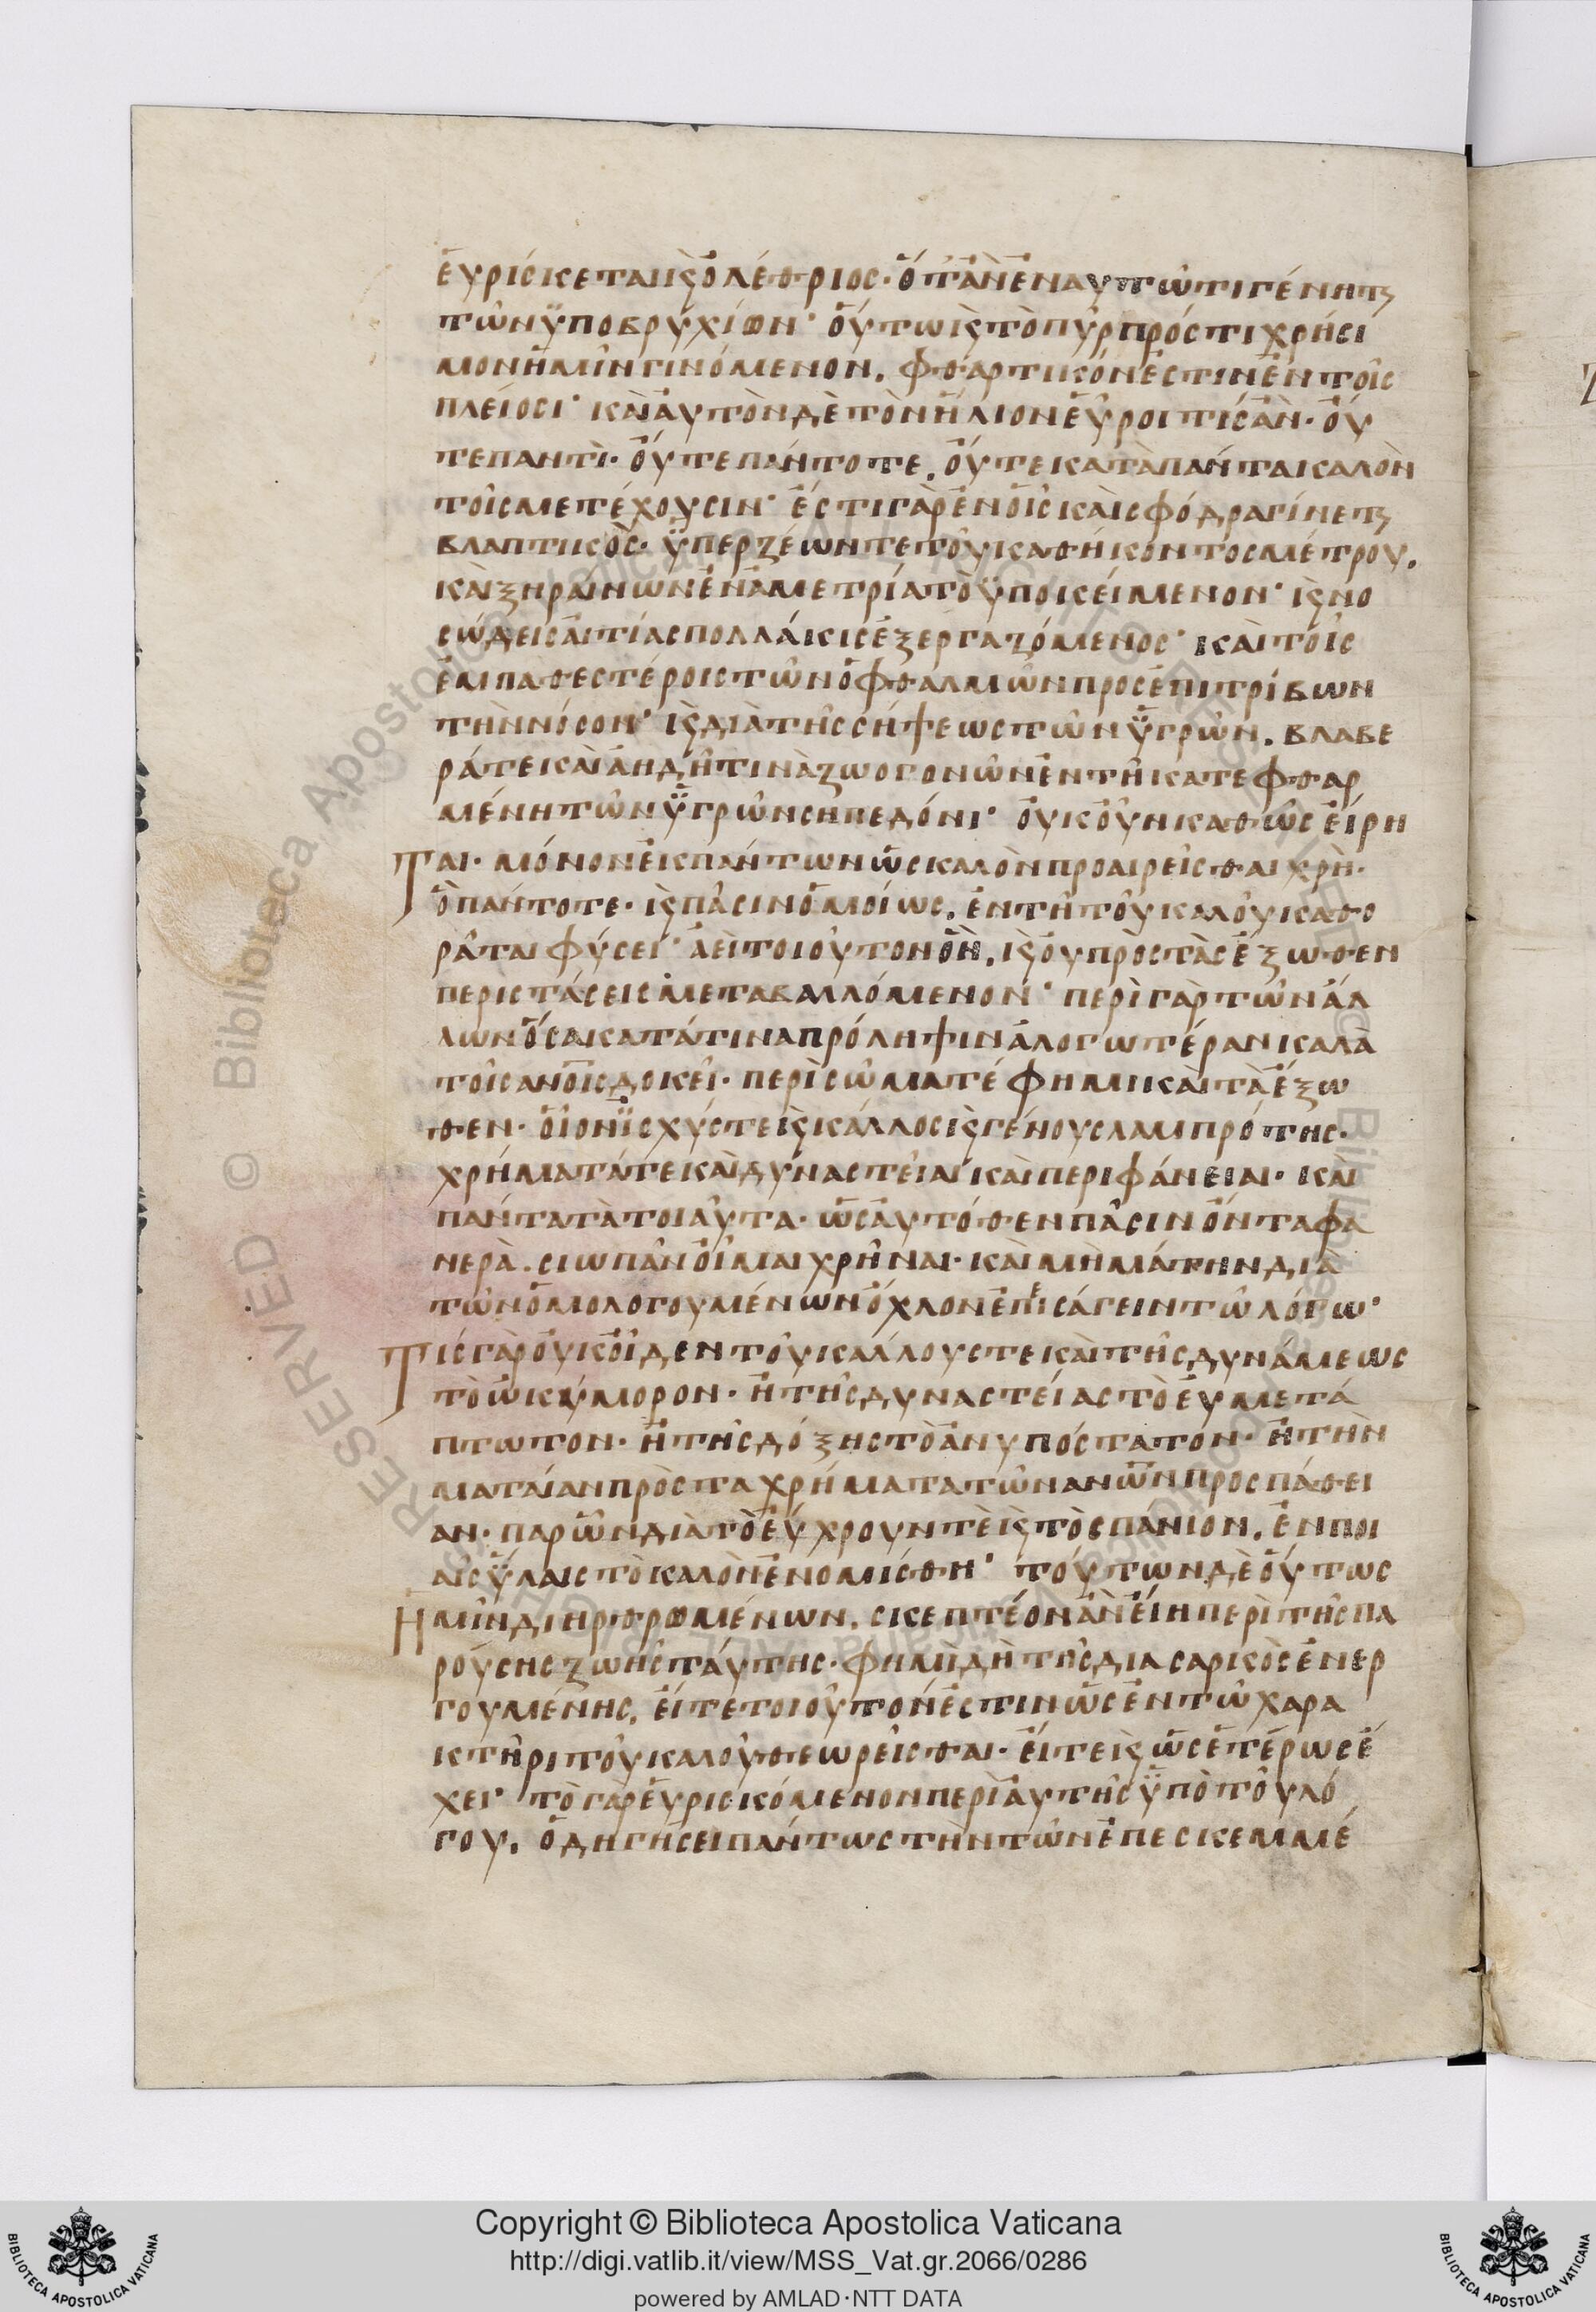 ἑυρίσκεται κ(αὶ) ὀλέθριος· ὅτἂν ἐν αυτῶ τι γένητ(αι)
τῶν ϋποβρύχιον· ὅυτω κ(αὶ) τὸ πῦρ πρός τι χρήσι
μον ἡμῖν γινόμενον. φθαρτικόν ἐστιν ἐν τοῖς
πλείοσι· καὶ ἀυτὸν δὲ τὸν ἥλιον ἕυροι τίς ἂν· ὄυ
τε παντὶ· ὄυτε πάντοτε. ὄυτε κατὰ πάντα καλὸν
τοῖς μετέχουσιν· ἔστι γὰρ ἐν οἷς καὶ σφόδρα γίνετ(αι)
βλαπτικὸς· ϋπερζέων τε τοῦ καθήκοντος μέτρου.
καὶ ξηραίνων ἐν ἀμετρία τὸ ϋποκείμενον· κ(αὶ) νο
σώδεις ἀιτίας πολλάκις ἐξεργαζόμενος· καὶ τοῖς
ἐμπαθεστέροις τῶν ὀφθαλμῶν προσεπιτρίβων
τὴν νόσον· κ(αὶ) διὰ τῆς σήψεως τῶν ϋγρῶν. βλαβε
ρά τε καὶ ἀηδῆ τινὰ ζωογονῶν ἐν τῆ κατεφθαρ
μένη τῶν ϋγρῶν σηπεδόνι· ὀυκοῦν καθὼς ἐίρη
Ται· μόνον ἐκ πάντων ὡς καλὸν προαιρεῖσθαι χρὴ·
ὃ πάντοτε· κ(αὶ) πᾶσιν ὁμοίως. ἐν τῆ τοῦ καλοῦ καθο
ρᾶται φύσει· ἀεὶ τοιοῦτον ὂν. κ(αὶ) ὀυ πρὸς τὰς ἔξωθεν
περιστάσεις μεταβαλλόμενον· περὶ γὰρ τῶν ἄλ
λων ὅσα κατά τινα πρόληψιν ἀλογωτέραν καλὰ
τοῖς ανοις δοκεῖ· περὶ σῶμα τέ φημι καὶ τὰ ἔξω
θεν· οἷον ϊσχύς τε κ(αὶ) κάλλος κ(αὶ) γένους λαμπρότης·
χρήματά τε καὶ δυναστεῖαι καὶ περιφάνειαι· καὶ
πάντα τὰ τοιαῦτα· ὡς ἀυτόθεν πᾶσιν ὄντα φα
νερὰ. σιωπᾶν οἶμαι χρῆναι· καὶ μὴ μάτην διὰ
τῶν ὁμολογουμένων ὄχλον ἐπεισάγειν τῶ λόγω·
Τίς γὰρ ὀυκ οἶδεν τοῦ κάλλους τε καὶ τῆς δυνάμεως
τὸ ὠκύμορον· ἢ τῆς δυναστείας τὸ ἐυμετά
πτωτον· ἢ τῆς δόξης τὸ ἀνυπόστατον· ἢ τὴν
ματαίαν πρὸς τα χρήματα τῶν ανων προσπάθει
αν· παρ ὧν διὰ τὸ ἔυχρουν τὲ κ(αὶ) τὸ σπάνιον. ἐν ποι
αῖς ὕλαις τὸ καλὸν ἐνομίσθη· τούτων δὲ ὅυτως
Ημῖν διηρθρομένων. σκεπτέον ἂν ἔιη περὶ τῆς πα
ρούσης ζωῆς ταύτης· φημὶ δὴ τῆς δια σαρκὸς ἐνερ
γουμένης. ἔιτε τοιοῦτον ἐστιν ὡς ἐν τῶ χαρα
κτῆρι τοῦ καλοῦ θεωρεῖσθαι· ἔιτε κ(αὶ) ὡς ἑτέρως ἔ
χει· τὸ γὰρ ἑυρισκόμενον περὶ ἀυτῆς ϋπὸ τοῦ λό
γου. ὁδηγήσει πάντως τὴν τῶν ἐπεσκεμμέ
Copyright © Biblioteca Apostolica Vaticana
http://digi.vatlib.it/view/MSS_Vat.gr.2066/0286
powered by AMLAD·NTT DATA